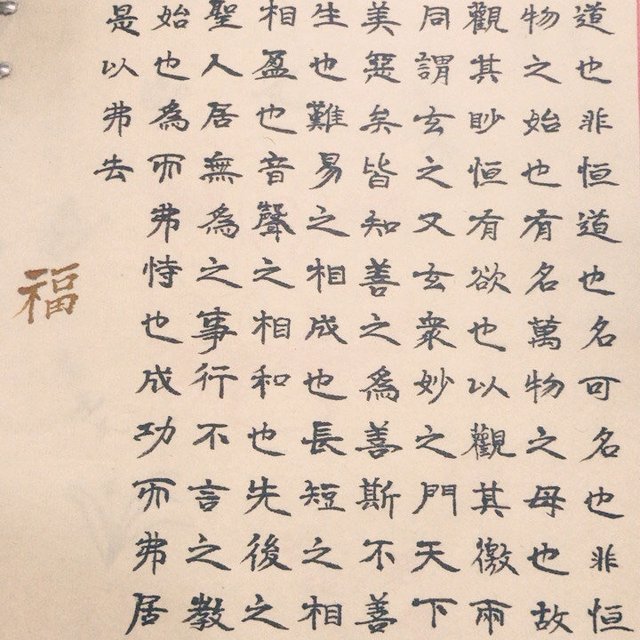 道也非恒道也名可名也非恒
物之始也有名萬物之母也故
觀其眇恒有欲也以觀其徼兩
同謂玄之又玄衆妙之門天下
美惡矣皆知善之為善斯不善
生也難易之相成也長短之相
相盈也音聲之相和也先後之
聖人居無為之事行不言之教
始也為而弗恃也成功而弗居
是以弗去
福